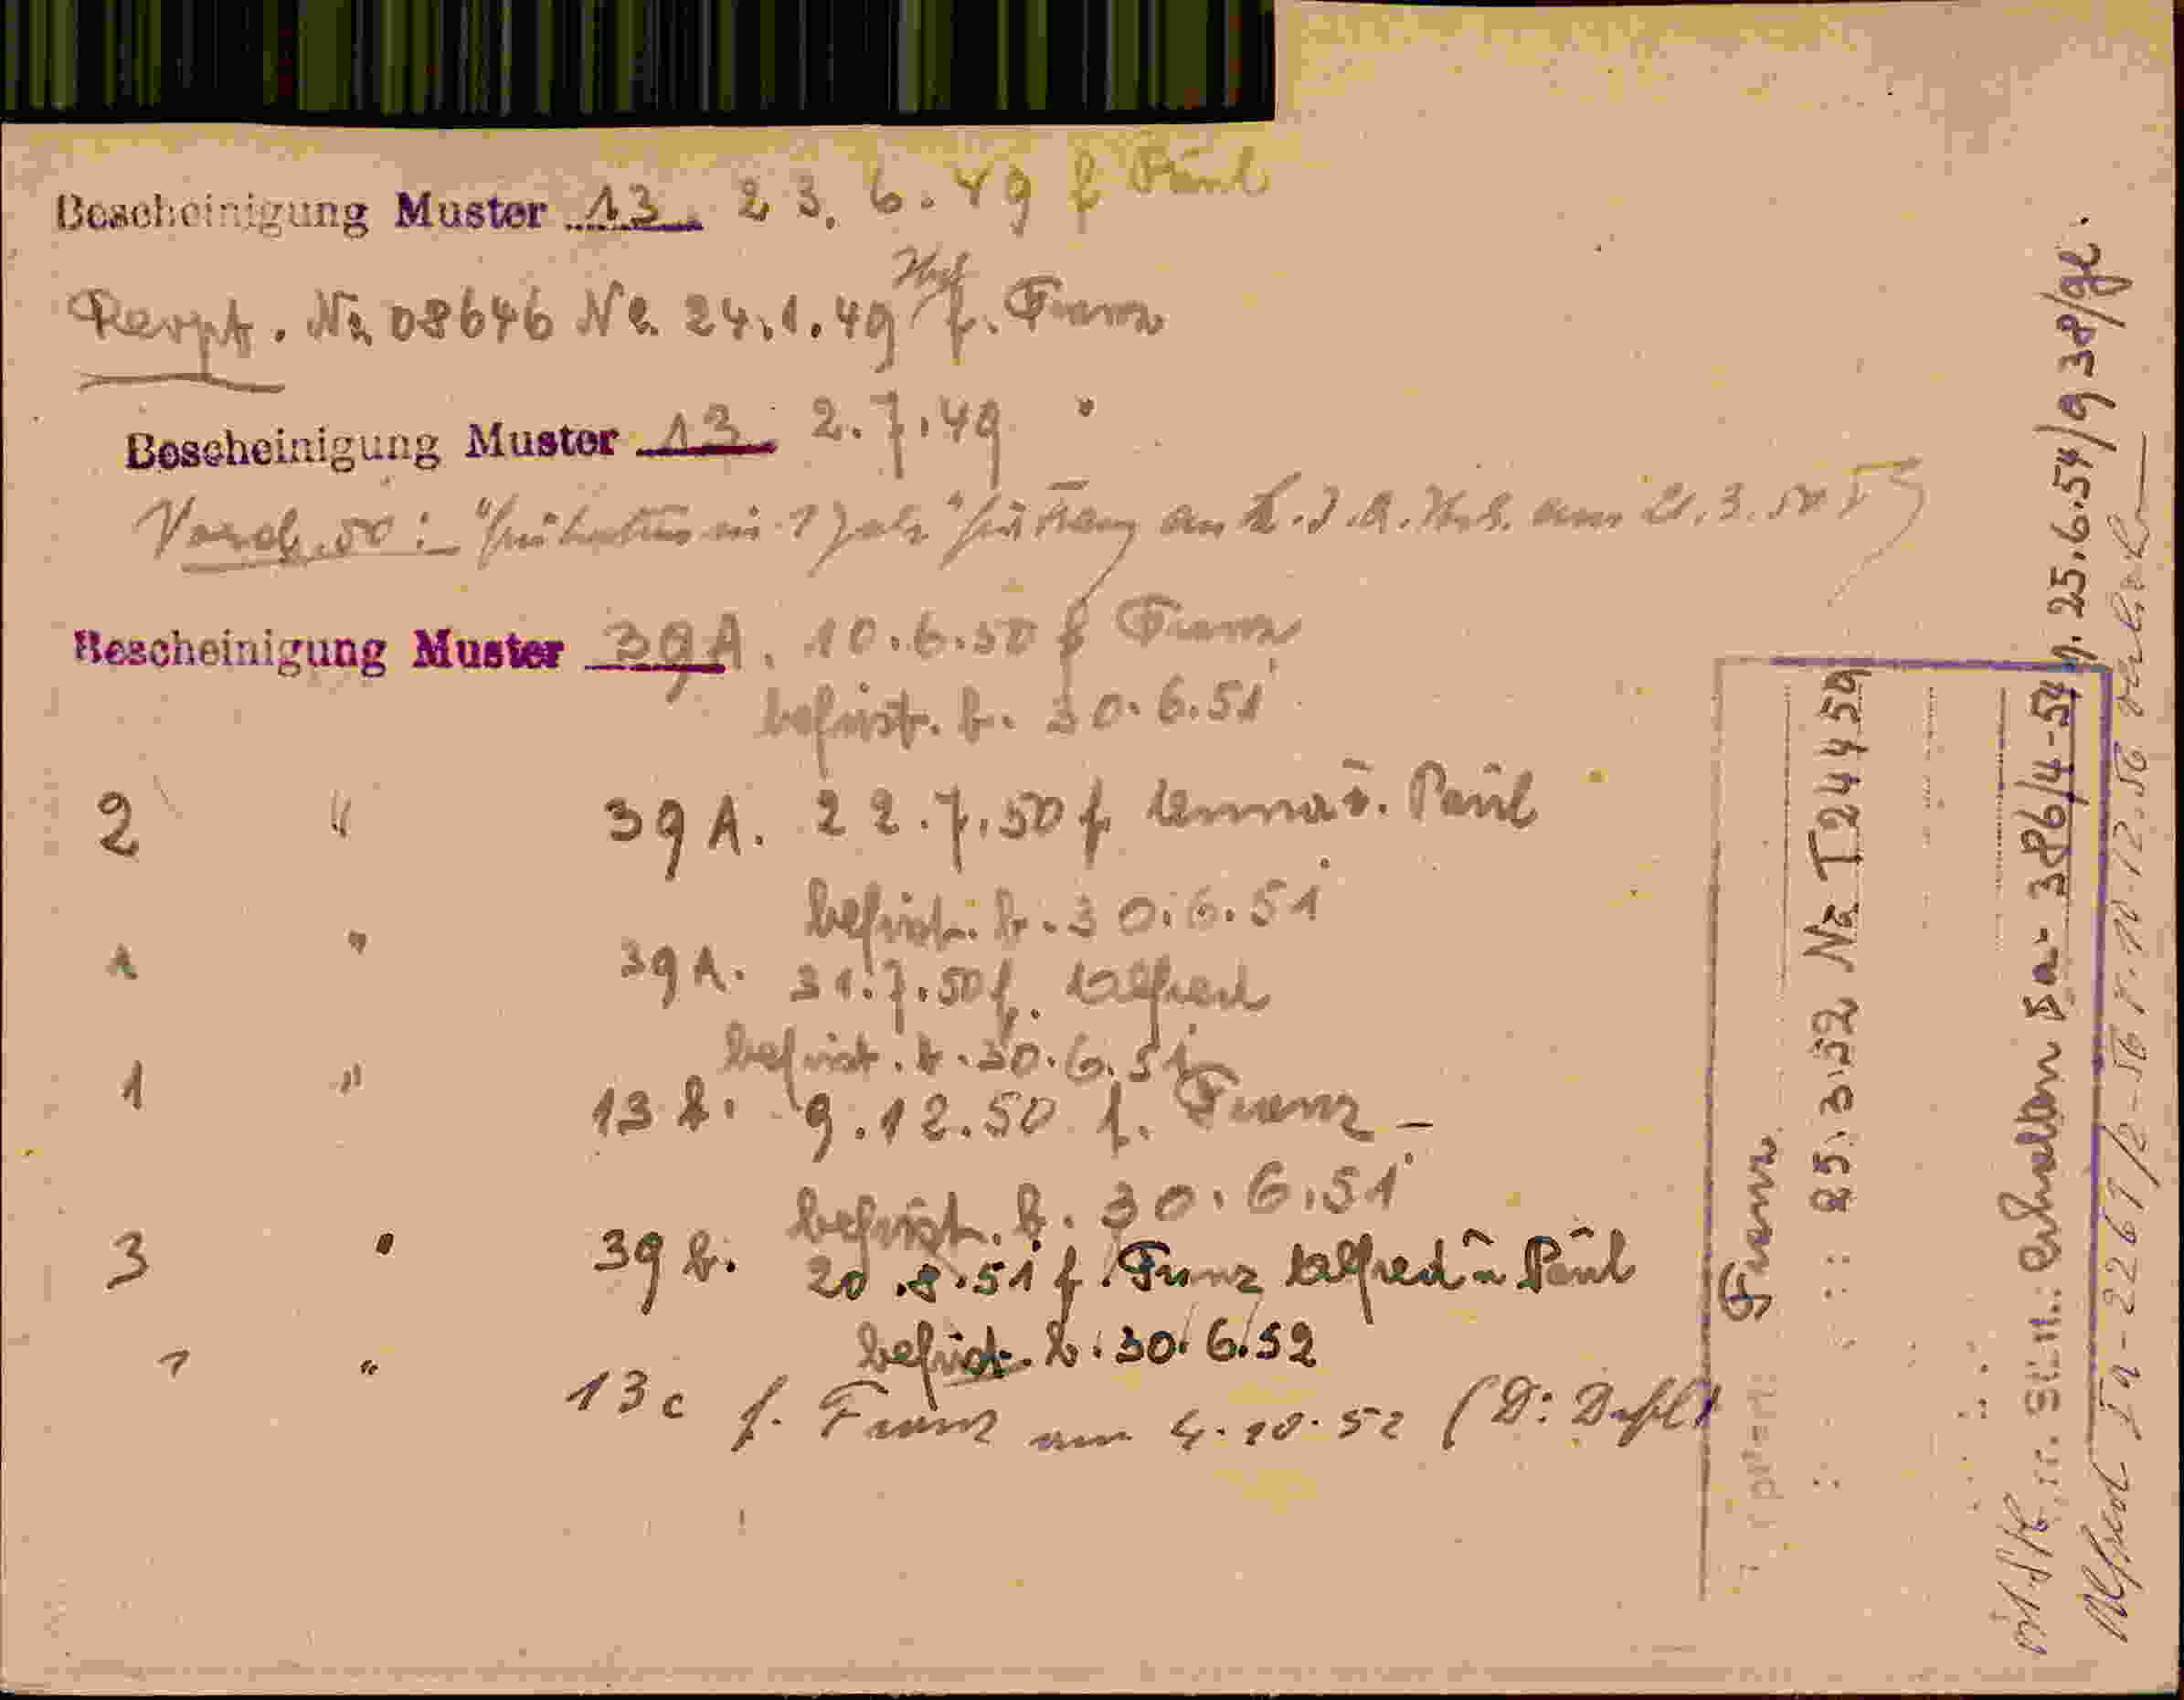 Bescheinigung Muster 13. 23. 6. 49 f Paul
Rezpt. No 08646 No. 24.1.49 f. Franz
Bescheinigung Muster 13 2.7.49 "
50: am 3.
Bescheinigung Muster 39A. 10.6.50 f Franz
befrist. b. 30.6.51
2 " 39 A. 22.7.50 f Paul
befrist. b. 30.6.51
1 " 39 A. 31.7.50 f. Alfred
befrist. b. 30.6.51
1 " 13 b. 9.12.50 f. Franz –
befrist. b. 30.6.51
3 " 39 b. 20.8.51 f. Franz Alfred u Paul
befrist. b. 30.6.52
1 " 13c f. Franz am 4.10.52
Franz
25.3.32 No T24459
erhalten 5a-386/4-54 25.6.54/938/
Alfred 5a-2261/2-56 10.12.56